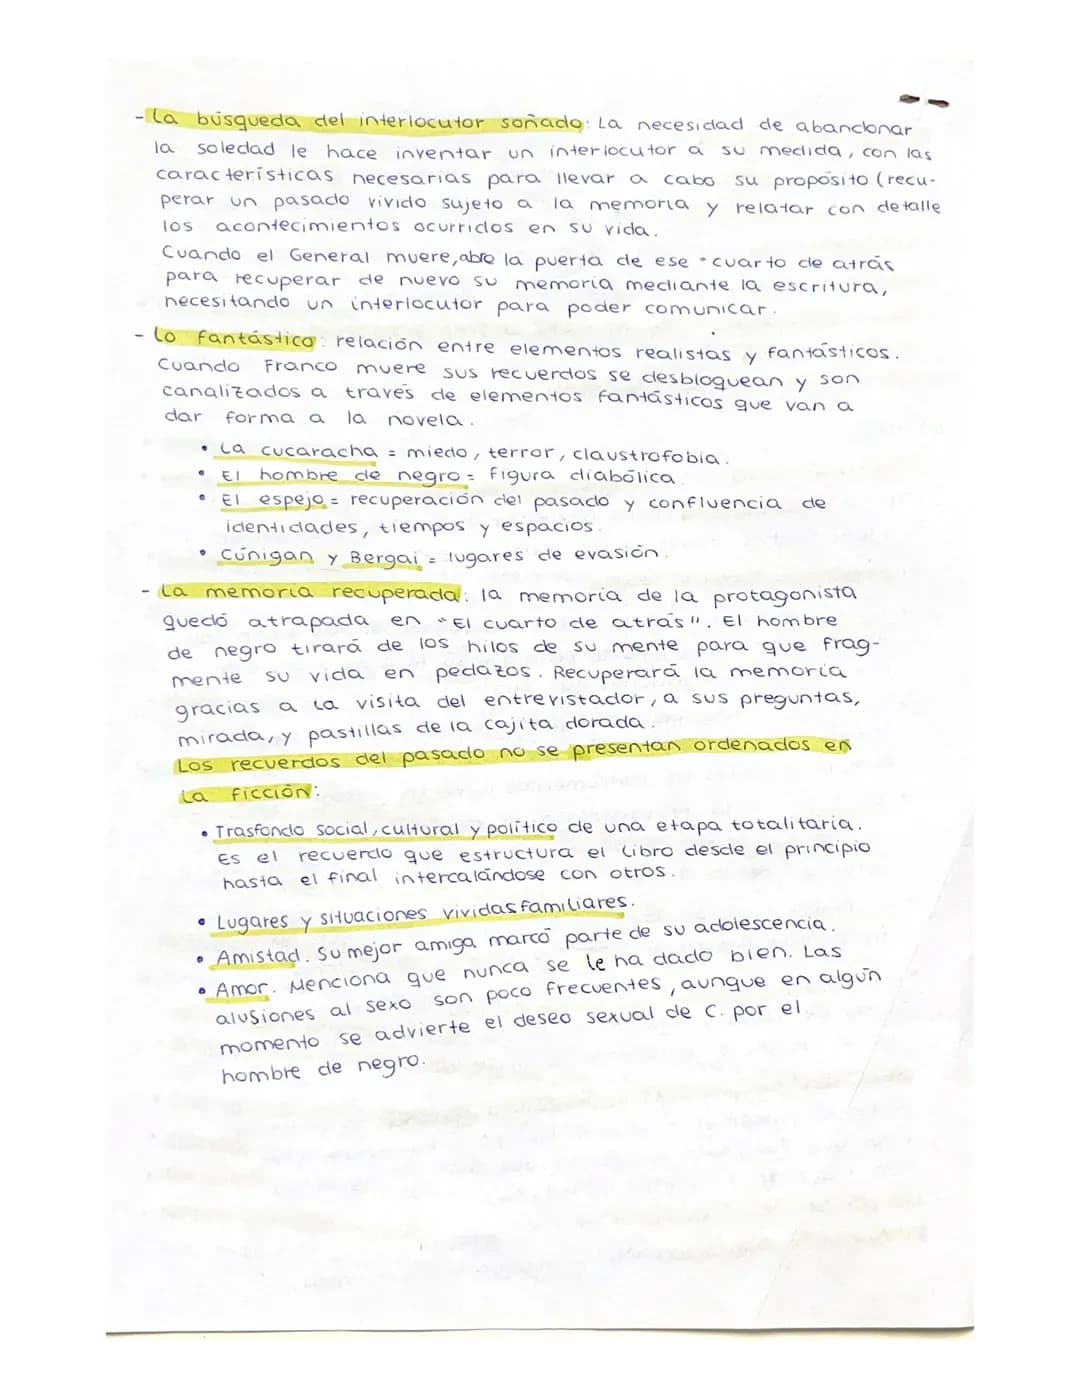 - La búsqueda del interlocutor soñado: La necesidad de abandonar
la soledad le hace inventar un interlocutor a su medida, con las
características necesarias para llevar a cabo su propósito (recu-
perar un pasado vivido sujeto a la memoria y relatar con detalle
los acontecimientos ocurridos en su vida.
Cuando el General muere, abre la puerta de ese "cuarto de atrás
para recuperar de nuevo su memoria mediante la escritura,
necesitando un interlocutor para poder comunicar.
- Lo fantástico: relación entre elementos realistas y fantásticos.
Cuando Franco muere sus recuerdos se desbloquean y son
canalizados a través de elementos fantásticos que van a
dar forma a la novela.
• La cucaracha = miedo, terror, claustrofobia.
• El hombre de negro = figura diabólica.
• El espejo = recuperación del pasado y confluencia de
identidades, tiempos y espacios.
• Cúnigan y Bergai = lugares de evasión.
- La memoria recuperada: la memoria de la protagonista
quedó atrapada en "El cuarto de atrás". El hombre
de negro tirará de los hilos de su mente para que frag-
mente su vida en pedazos. Recuperará la memoria
gracias a la visita del entrevistador, a sus preguntas,
mirada, y pastillas de la cajita dorada.
Los recuerdos del pasado no se presentan ordenados en
la ficción:
• Trasfondo social, cultural y político de una etapa totalitaria.
Es el recuerdo que estructura el libro desde el principio
hasta el final intercalándose con otros.
• Lugares y situaciones vividas familiares.
• Amistad. Su mejor amiga marcó parte de su adolescencia.
• Amor. Menciona que nunca se le ha dado bien. Las
alusiones al sexo son poco frecuentes, aunque en algún
momento se advierte el deseo sexual de C. por el
hombre de negro.